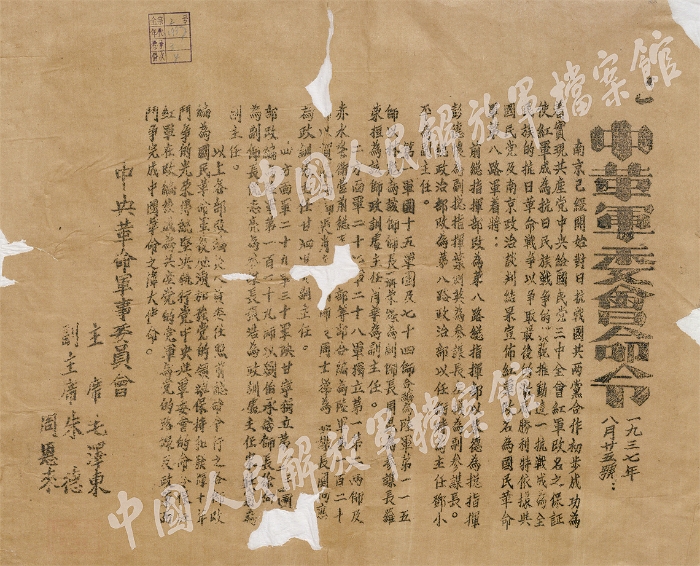 中華軍委會命令
一九三七年
八月廿五號：
南京已經開始對日抗戰國共兩党合作初步成功為
着實現共產党中央給國民党三中全會紅軍改名之保証
使紅軍成為抗日民族戰爭的模範推動這一抗戰成為全
民族的抗日革命戰爭以爭取最後勝利特依據與
國民党及南京政治談判結果宣佈紅軍改名為國民革命
軍第八路軍着將：
前總指揮部改為第八路總指揮部以朱德為總指揮
彭德懷為副總指揮葉劍英為參謀長左權為副參謀長。
總政治部改為第八路政治部以任弼時為主任鄧小
平為副主任。
第一軍團十五軍團及七十四師合編為陸軍第一一五
師以林彪為該師師長聶榮臻為副師長周昆為參謀長羅
榮桓為該師政訓處主任蕭華為副主任。
二方面軍二十七軍二十八軍獨立第一第二兩師及
赤水警衛營前總直之一部等部合編為陸軍第一百二十
師以賀龍為師長蕭克為副師長周士第為參謀長關向應
為政訓處主任甘泗淇為副主任。
四方面軍二十九軍三十軍陝甘寧獨立第
部改編為陸軍第一百二十九師以劉伯承為師長徐
為副師長倪志亮為參謀長張浩為政訓處主任
副主任。
以上各部改編後人員委任照前總命令行之各部改
編為國民革命軍後必須加強党的領導保持和發揮十年
鬥爭的光榮傳統堅決執行党中央與軍委會的命令保證
紅軍在改編後成為共產党的党軍為党的路線及政策而
鬥爭完成中國革命之偉大使命。
中央革命軍事委員會
主席毛澤東
副主席朱德
周恩來
中国人民解放軍檔案館
中国人民解放軍檔案館
中国人民解放軍檔案館